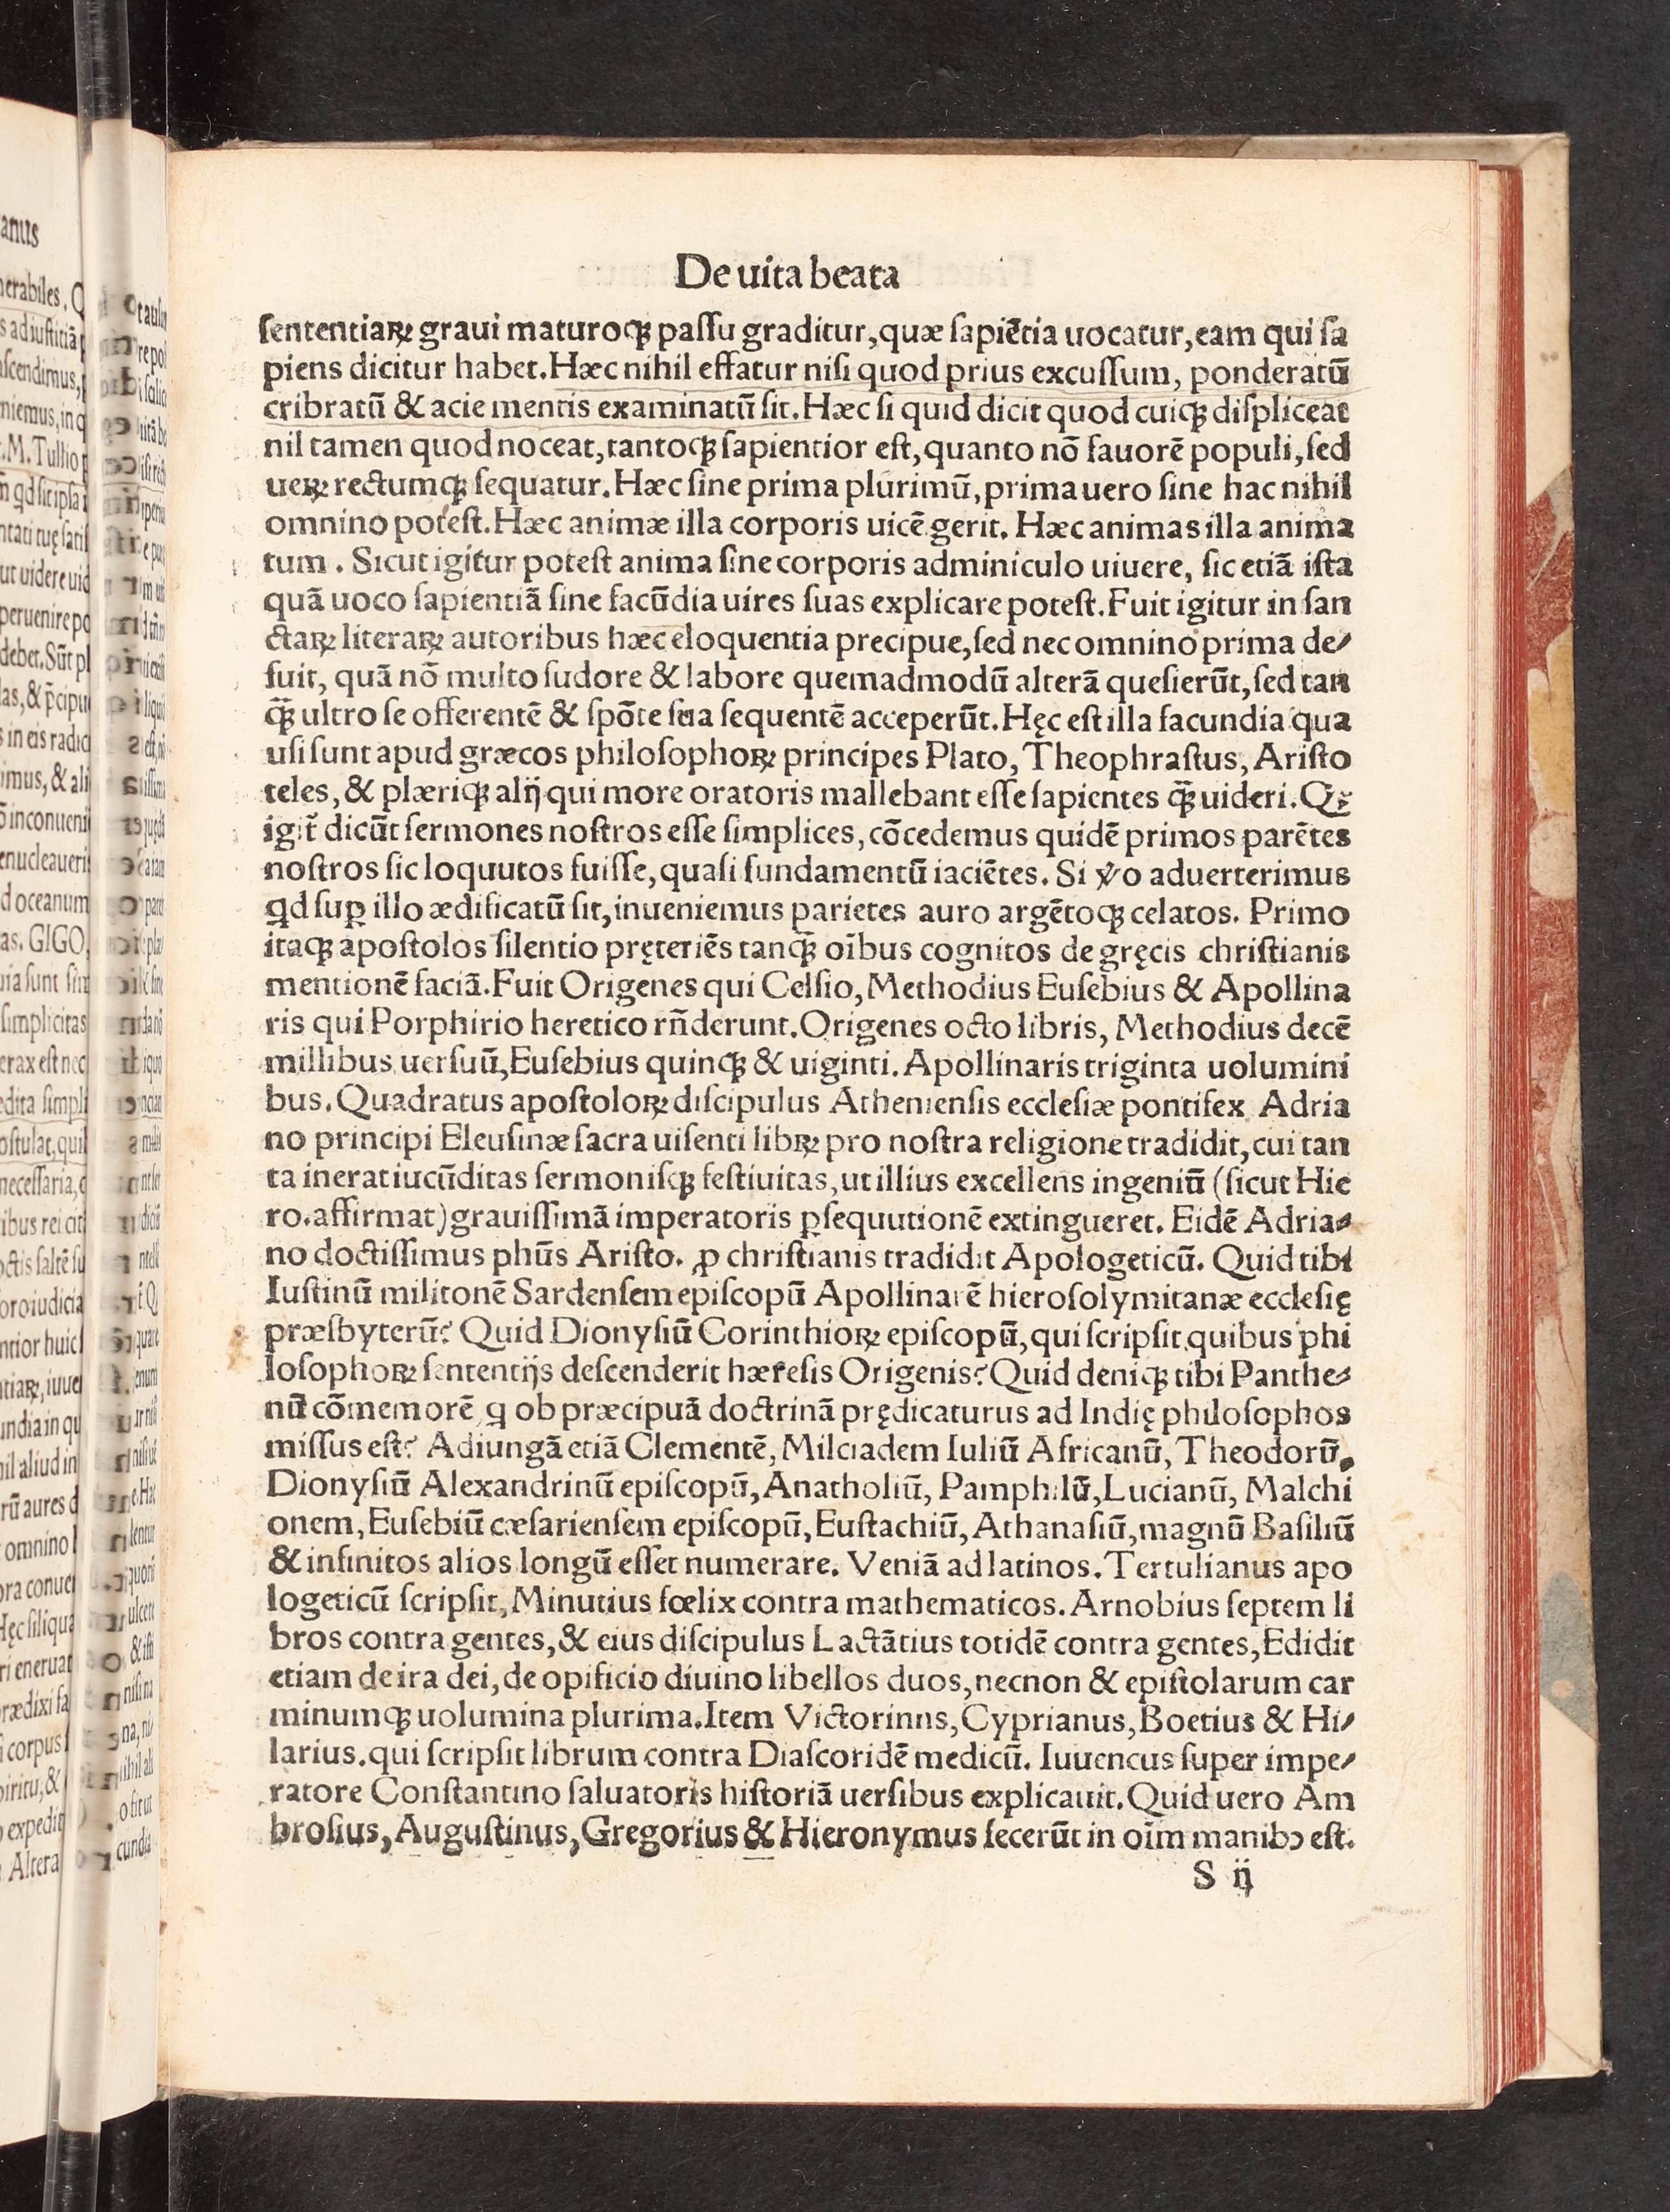 De uita beata
ſententiaꝝ graui maturoqꝫ paſſu graditur, quæ ſapiẽtia uocatur, eam qui ſa
piens dicitur habet. Hæc nihil effatur niſi quod prius excuſſum, ponderatū
cribratū & acie mentis examinatū ſit. Hæc ſi quid dicit quod cuiqꝫ diſpliceat
nil tamen quod noceat, tantoqꝫ ſapientior eſt, quanto nõ fauorẽ populi, ſed
ueꝝ rectumqꝫ ſequatur. Hæc ſine prima plurimū, prima uero ſine hac nihil
omnino poteſt. Hæc animæ illa corporis uicẽ gerit. Hæc animas illa anima
tum. Sicut igitur poteſt anima ſine corporis adminiculo uiuere, ſic etiã iſta
quã uoco ſapientiã ſine facūdia uires ſuas explicare poteſt. Fuit igitur in ſan
ctaꝝ literaꝝ autoribus hæc eloquentia precipue, ſed nec omnino prima de/
fuit, quã nõ multo ſudore & labore quemadmodū alterã queſierūt, ſed tan
qꝫ̃ ultro ſe offerentẽ & ſpõte ſua ſequentẽ acceperūt. Hęc eſt illa facundia qua
uſi ſunt apud græcos philoſophoꝝ principes Plato, Theophraſtus, Ariſto
teles, & plæriqꝫ alij qui more oratoris mallebant eſſe ſapientes qꝫ̃ uideri. Qꝛ
igit̃ dicūt ſermones noſtros eſſe ſimplices, cõcedemus quidẽ primos parẽtes
noſtros ſic loquutos fuiſſe, quaſi fundamentū iaciẽtes. Si ꝟo aduerterimus
qd ſuꝑ illo ædificatū ſit, inueniemus parietes auro argẽtoqꝫ celatos. Primo
itaqꝫ apoſtolos ſilentio pręteriẽs tanqꝫ̃ oĩbus cognitos de gręcis chriſtianis
mentionẽ faciã. Fuit Origenes qui Celſio, Methodius Euſebius & Apollina
ris qui Porphirio heretico rñderunt. Origenes octo libris, Methodius decẽ
millibus uerſuū, Euſebius quinqꝫ & uiginti. Apollinaris triginta uolumini
bus. Quadratus apoſtoloꝝ diſcipulus Athenienſis eccleſiæ pontifex Adria
no principi Eleuſinæ ſacra uiſenti libꝝ pro noſtra religione tradidit, cui tan
ta inerat iucūditas ſermoniſqꝫ feſtiuitas, ut illius excellens ingeniū (ſicut Hie
ro. affirmat) grauiſſimã imperatoris ꝑſequutionẽ extingueret. Eidẽ Adria/
no doctiſſimus phūs Ariſto. ꝓ chriſtianis tradidit Apologeticū. Quid tibi
Iuſtinū militonẽ Sardenſem epiſcopū Apollinarẽ hieroſolymitanæ eccleſię
præſbyterū? Quid Dionyſiū Corinthioꝝ epiſcopū, qui ſcripſit quibus phi
loſophoꝝ ſententijs deſcenderit hæreſis Origenis? Quid deniqꝫ tibi Panthe/
nū cõmemorẽ ꝗ ob præcipuã doctrinã prędicaturus ad Indię philoſophos
miſſus eſt? Adiungã etiã Clementẽ, Milciadem Iuliū Africanū, Theodorū,
Dionyſiū Alexandrinū epiſcopū, Anatholiū, Pamphilū, Lucianū, Malchi
onem, Euſebiū cæſarienſem epiſcopū, Euſtachiū, Athanaſiū, magnū Baſiliū
& infinitos alios longū eſſet numerare. Veniã ad latinos. Tertulianus apo
logeticū ſcripſit, Minutius fœlix contra mathematicos. Arnobius ſeptem li
bros contra gentes, & eius diſcipulus Lactãtius totidẽ contra gentes, Edidit
etiam de ira dei, de opificio diuino libellos duos, necnon & epiſtolarum car
minumqꝫ uolumina plurima. Item Victorinns, Cyprianus, Boetius & Hi/
larius. qui ſcripſit librum contra Diaſcoridẽ medicū. Iuuencus ſuper impe/
ratore Conſtantino ſaluatoris hiſtoriã uerſibus explicauit. Quid uero Am
broſius, Auguſtinus, Gregorius & Hieronymus fecerūt in oĩm manibꝰ eſt.
S ij